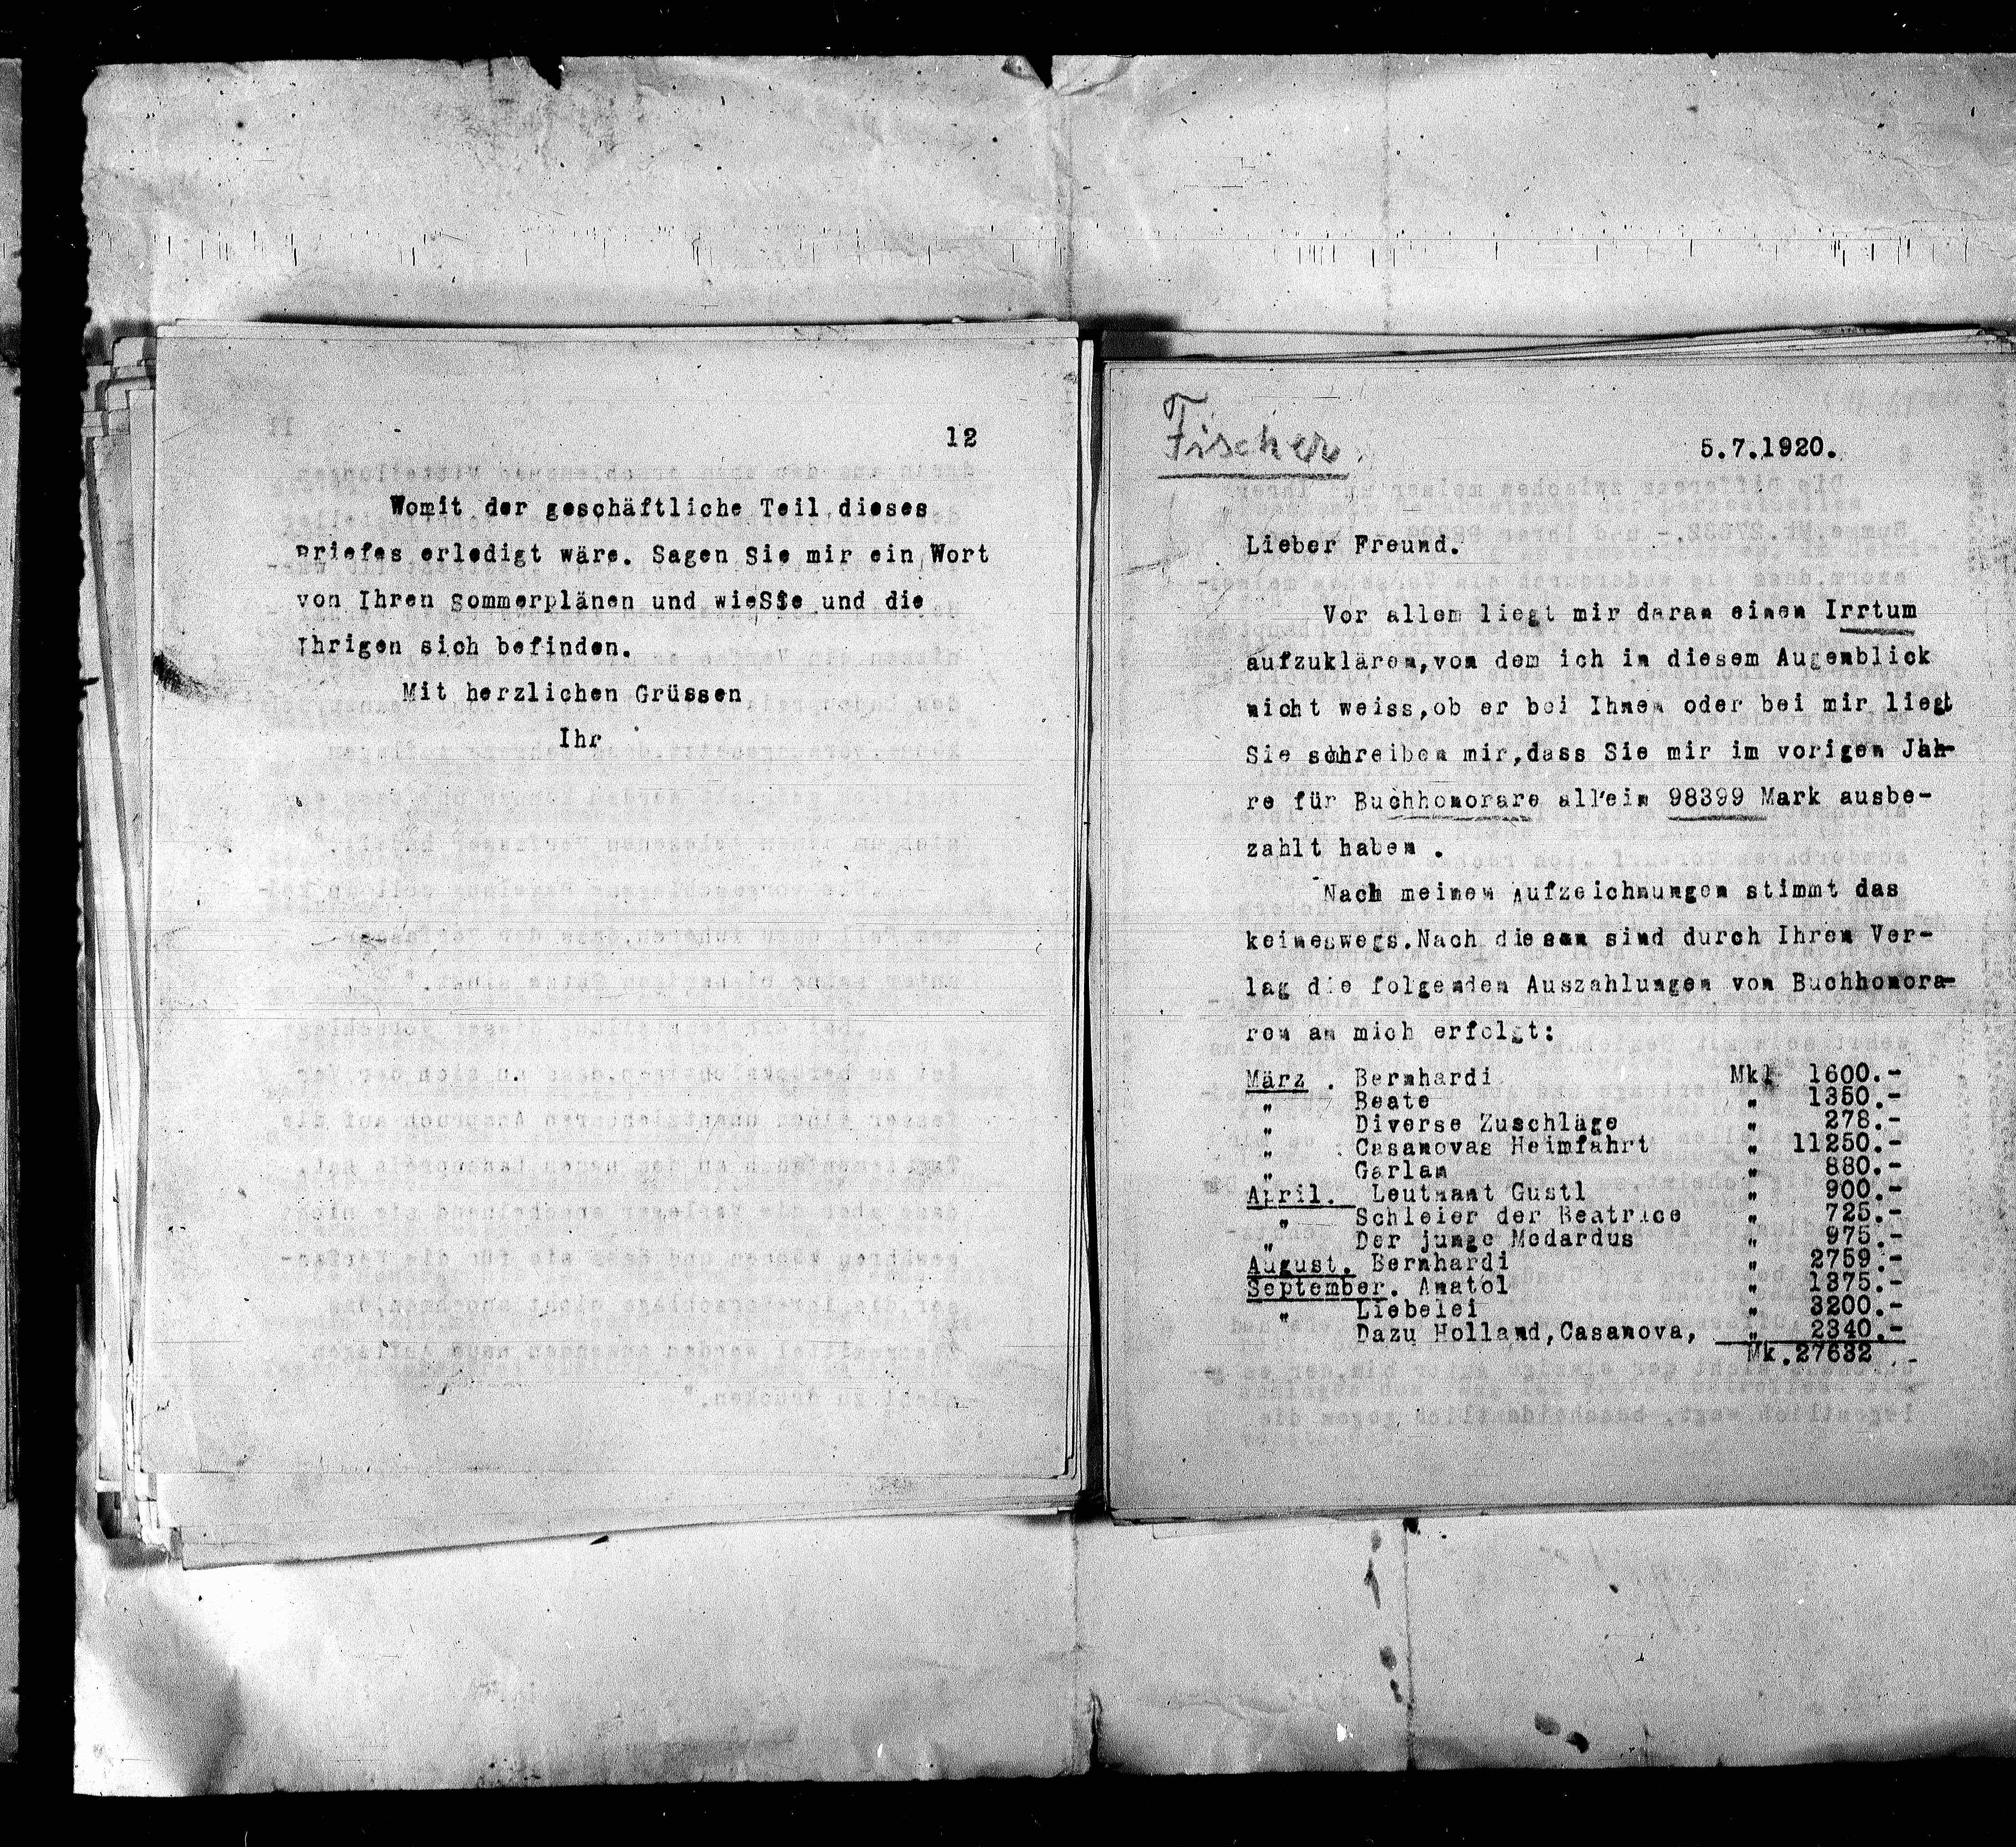 12
Womit der geschäftliche Teil dieses
Briefes erledigt wäre. Sagen Sie mir ein Wort
von Ihren Sommerplänen und wieSie und die
Ihrigen sich befinden.
Mit herzlichen Grüssen
Ihr
Fischer
5.7.1920.
Lieber Freund.
Vor allem liegt mir daran einen Irrtum
aufzuklären,von dem ich in diesem Augenblick
nicht weiss,ob er bei Ihnen oder bei mir liegt
Sie schreiben mir,dass Sie mir im vorigen Jah-
re für Buchhonorare allein 98399 Mark ausbe-
zahlt haben .
Nach meinen Aufzeichnungen stimmt das
keineswegs.Nach diesen sind durch Ihren Ver-
lag die folgenden Auszahlungen von Buchhonora-
ren an mich erfolgt:
März . Bernhardi Mk 1600.-
" Beate " 1350.-
" Diverse Zuschläge " 278.-
" Casanovas Heimfahrt " 11250.-
" Garlan " 880.-
April. Leutnant Gustl " 900.-
" Schleier der Beatrice " 725.-
" Der junge Medardus " 975.-
August. Bernhardi " 2759.-
September. Anatol " 1375.-
" Liebelei " 3200.-
Dazu Holland,Casanova, " 2340.-
Mk.27632.-